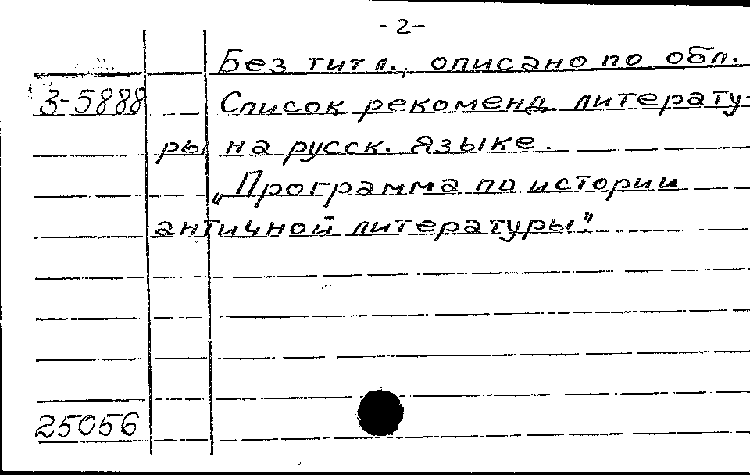 -2-
Без титл., описано по обл.
3-5888 Список рекоменд. литерату-
ры на русск. языке.
„Программа по истории
античной литературы"
25056